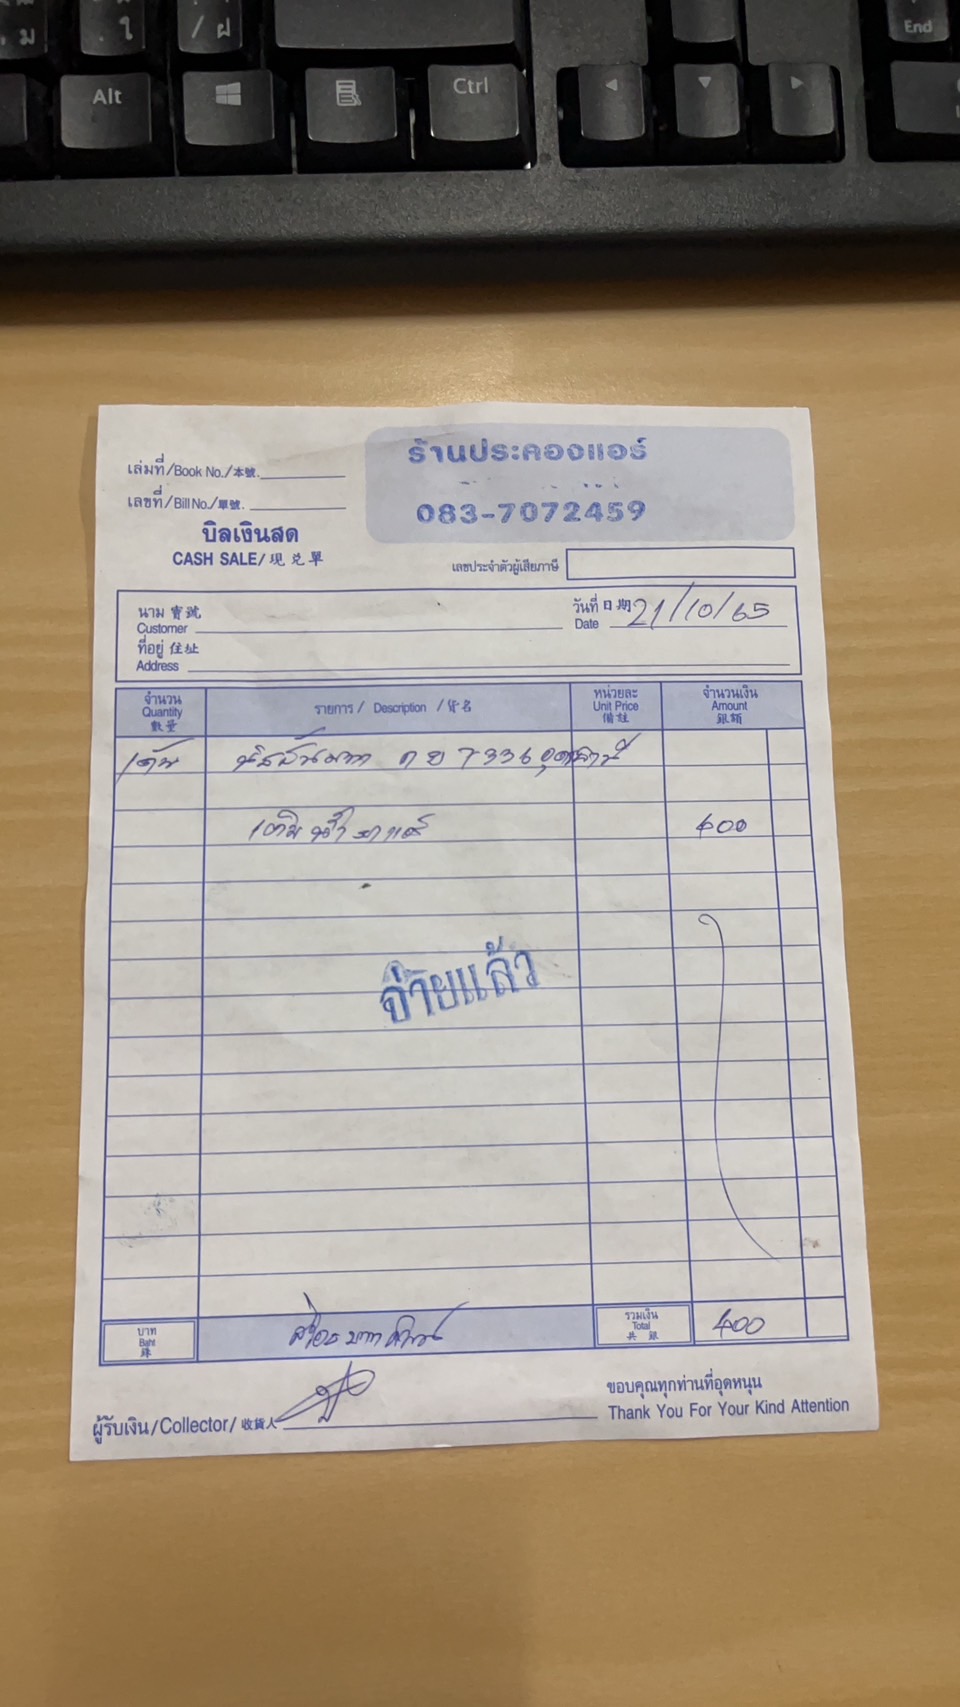 ม
. ใ
/ ฝ
End
Alt
Ctrl
ร้านประคองแอร์
083-7072459
เล่มที่/Book No./本號.
เลขที่/Bill No./單號.
บิลเงินสด
CASH SALE/現兑單
เลขประจำตัวผู้เสียภาษี
นาม 寶號
Customer
วันที่ 日期 21/10/65
Date
ที่อยู่ 住址
Address
จำนวน
Quantity
數量
รายการ / Description / 貨名
หน่วยละ
Unit Price
備註
จำนวนเงิน
Amount
銀額
1คัน 7336
เติมน้ำยาแอร์ 400
จ่ายแล้ว
บาท
Baht
銖
สี่ร้อยบาทถ้วน
รวมเงิน
Total
共銀
400
ผู้รับเงิน/Collector/收貨人
ขอบคุณทุกท่านที่อุดหนุน
Thank You For Your Kind Attention